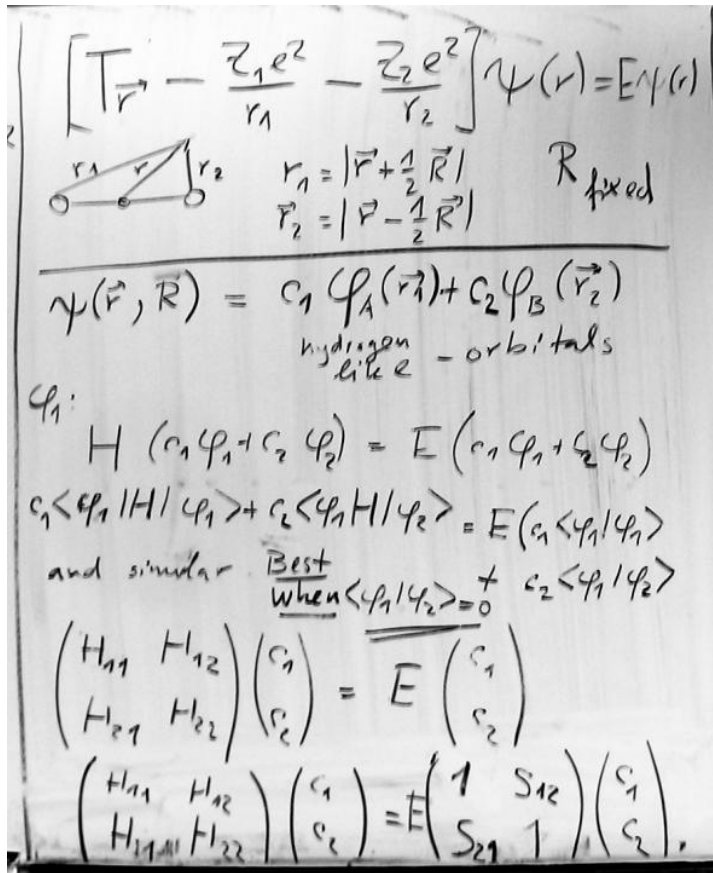 [T_r⃗ − Z₁e²/r₁ − Z₂e²/r₂] ψ(r) = Eψ(r)
r₁ r r₂
r₁ = |r⃗ + ½ R⃗| R fixed
r⃗₂ = |r⃗ − ½ R⃗|
ψ(r⃗, R⃗) = c₁ φ_A(r⃗₁) + c₂ φ_B(r⃗₂)
hydrogen like - orbitals
φ₁:
H (c₁φ₁ + c₂ φ₂) = E (c₁φ₁ + c₂φ₂)
c₁<φ₁|H|φ₁> + c₂<φ₁H|φ₂> = E(c₁<φ₁|φ₁>
and similar Best + c₂<φ₁|φ₂>
when <φ₁|φ₂> = 0
(H₁₁ H₁₂; H₂₁ H₂₂) (c₁; c₂) = E (c₁; c₂)
(H₁₁ H₁₂; H₂₁ H₂₂) (c₁; c₂) = E (1 S₁₂; S₂₁ 1) (c₁; c₂).